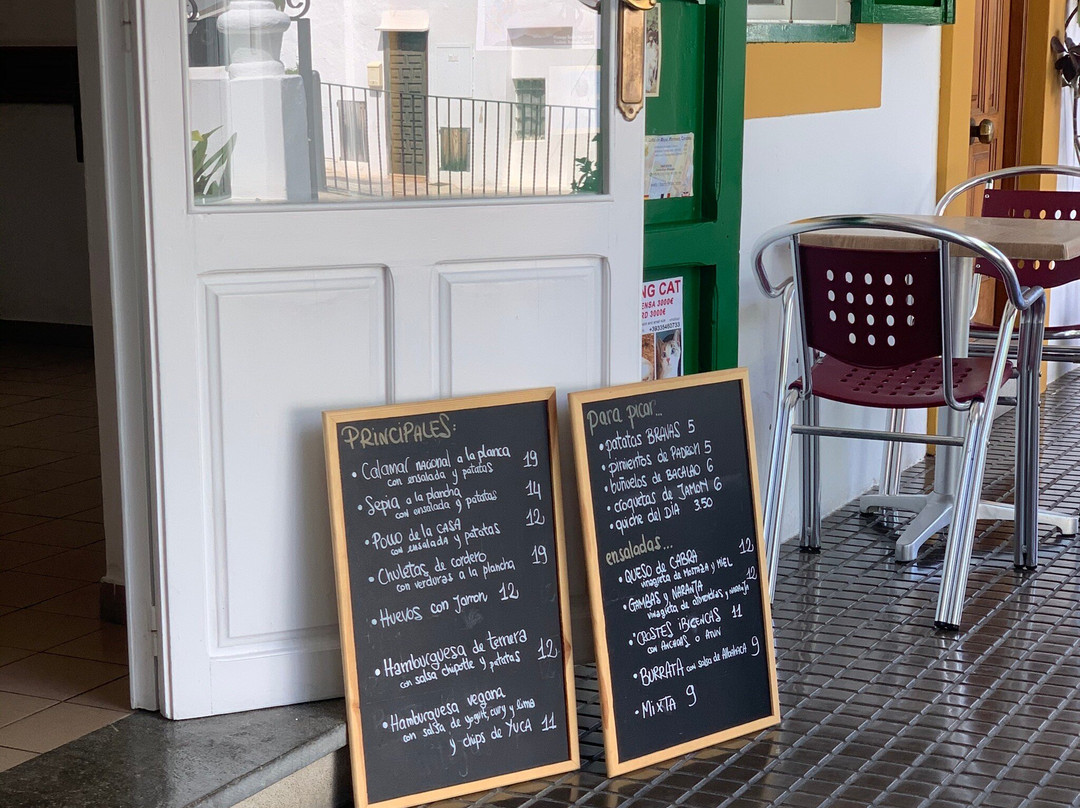 PRINCIPALES:
• Calamar NACIONAL a la planca 19
con ensalada y patatas
• Sepia a la plancha 14
con ensalada y patatas
• POLLO de la CASA 12
con ensalada y patatas
• Chuletas de cordero 19
con verduras a la plancha
• Huevos con Jamon 12
• Hamburguesa de ternera 12
con salsa chipotle y patatas
• Hamburguesa vegana
con salsa de yogurt, curry y lima
y chips de YUCA 11
para picar...
• patatas BRAVAS 5
• pimientos de PADRON 5
• buñuelos de BACALAO 6
• croquetas de JAMON 6
• quiche del DIA 3.50
ensaladas...
• QUESO de CABRA 12
vinagreta de MOSTAZA y MIEL
• GAMBAS y NARANJA 12
vinagreta de almendras y naranja
• CROSTES IBICENCAS 11
con ANCHOAS O ATUN
• BURRATA con salsa de Albahaca 9
• MIXTA 9
NG CAT
ENSA 3000€
RD 3000€